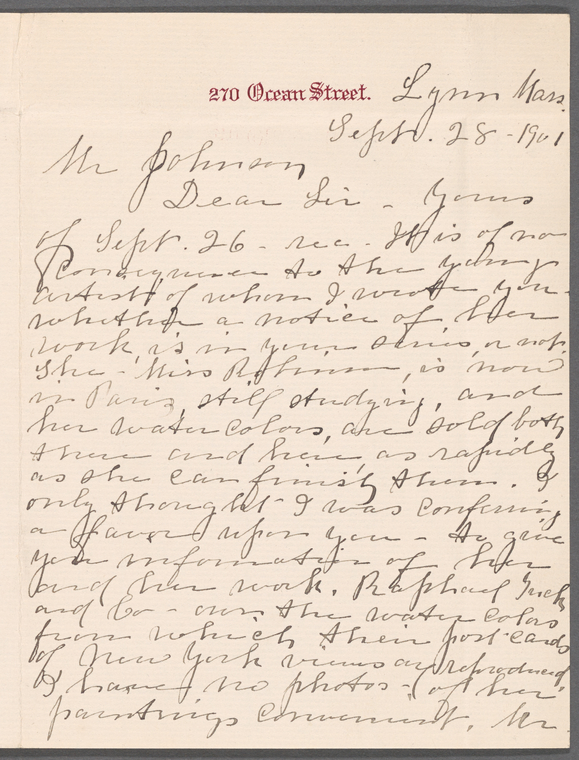 270 Ocean Street. Lynn Mass.
Sept. 28 - 1901
Mr Johnson
Dear Sir - Yours
of Sept. 26 - rec - It is of no
consequence to the young
artist of whom I wrote you -
whether a notice of her
work, is in your series, or not.
She - Miss Robinson, is now
in Paris, still studying, and
her water colors, are sold both
there and here, as rapidly
as she can finish them. I
only thought I was conferring
a favor upon you - to give
you information of her
and her work. Raphael Tuck
and Co - own the water colors
from which their post cards
of New York views are reproduced.
I have no photos - of her
paintings convenient. Mr.